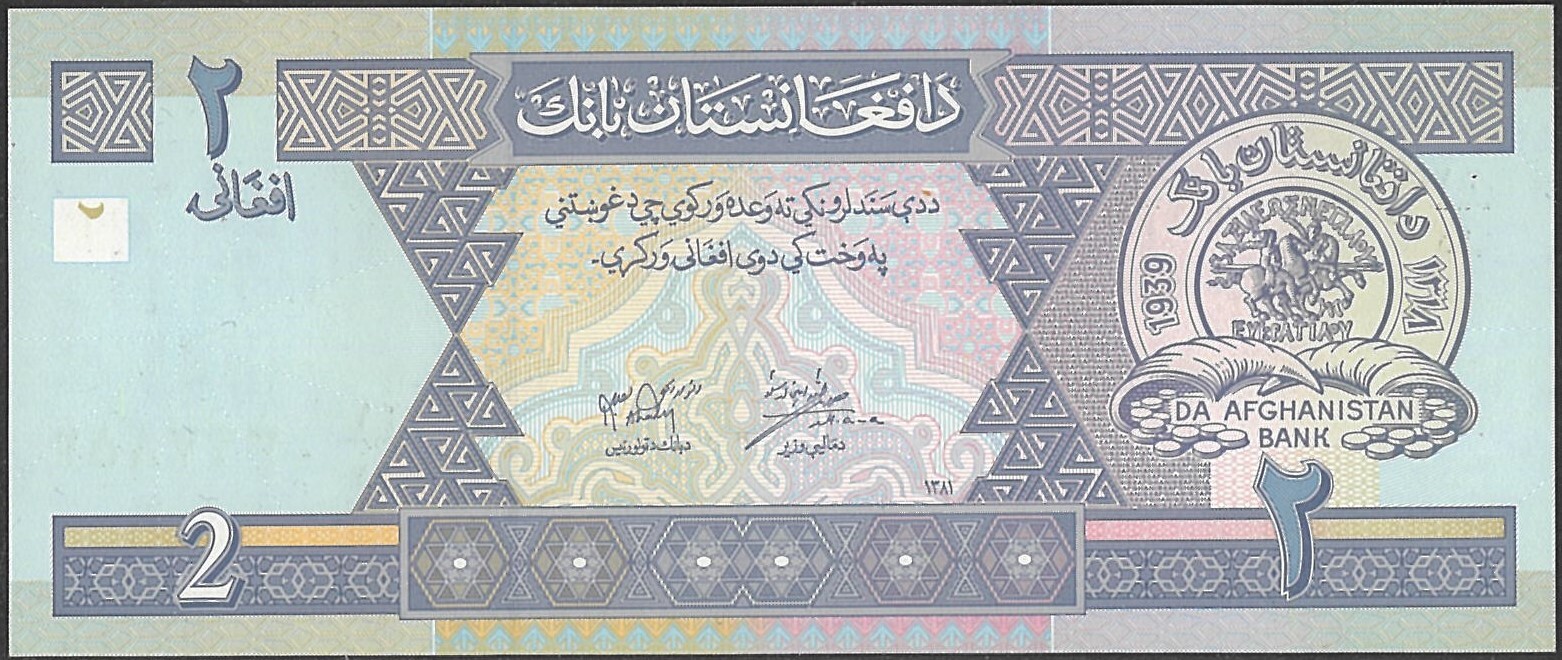 ۲
افغانۍ
دافغانستان بانك
ددې سند لرونکي ته وعده ورکوي چې د غوښتنې
په وخت کې دوې افغانۍ ورکړي۔
دبانك
دمالیې وزیر
۱۳۸۱
د افغانستان بانک
1939
۱۳۱۸
ΕΥΚΡΑΤΙΔΟΥ
DA AFGHANISTAN
BANK
2
۲